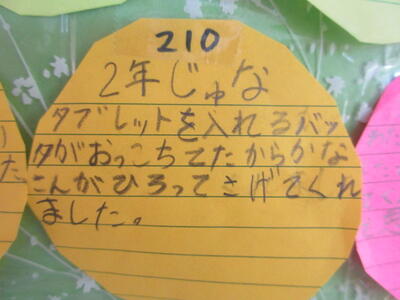 210
2年じゅな
タブレットを入れるバッ
タがおっこちてたからかな
こんがひろってさげてくれ
ました。